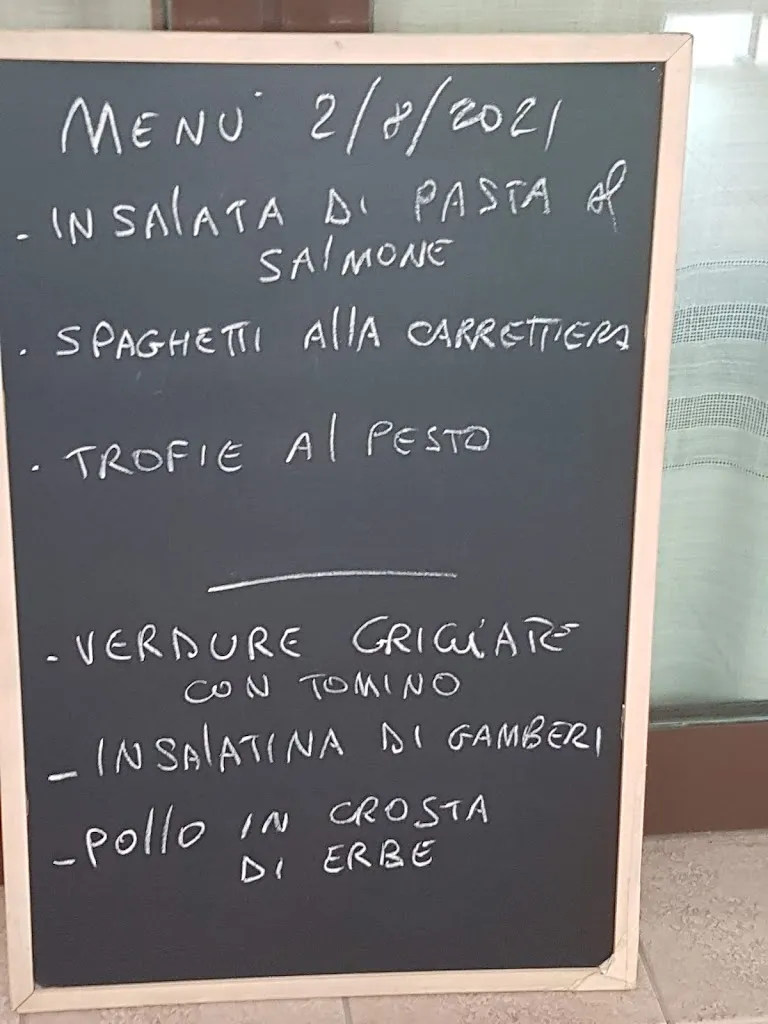 MENU' 2/8/2021
- INSAlATA DI PASTA al
SAlMONE
. SPAGHETTI AllA CARRETTIERA
. TROFIE Al PESTO
- VERDURE GRIGLIATE
CON TOMINO
- INSAlATINA DI GAMBERI
- POllO IN CROSTA
DI ERBE